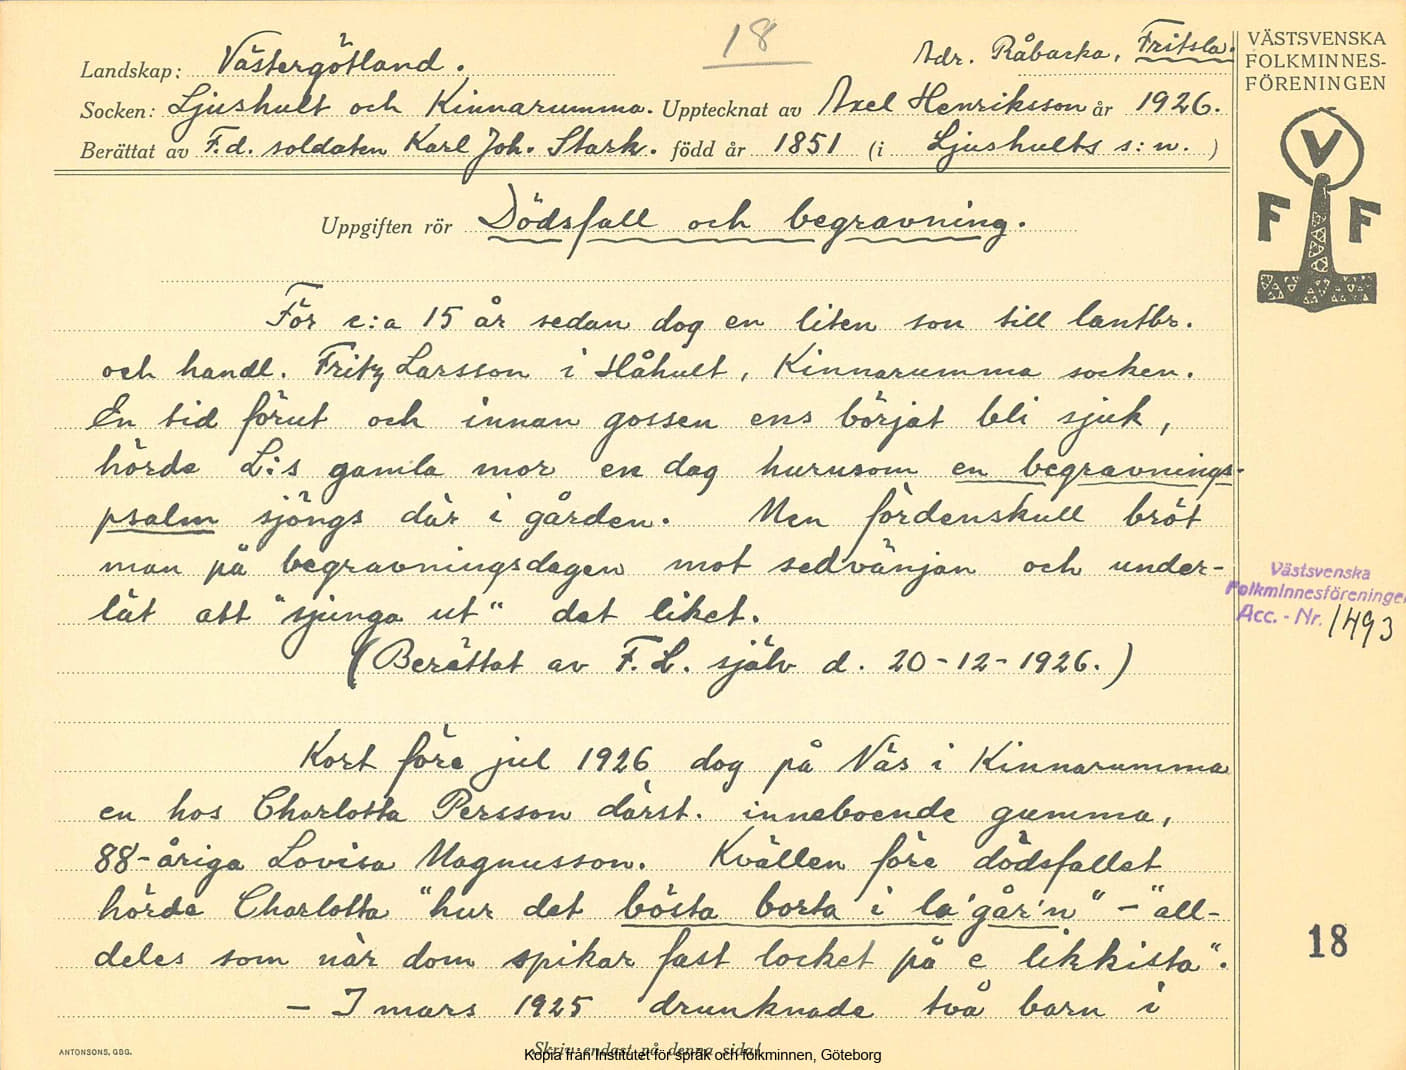 18
Adr. Råbacka, Fritsla.
Landskap: Västergötland.
Socken: Ljushult och Kinnarumma. Upptecknat av Axel Henriksson år 1926.
Berättat av F.d. soldaten Karl Joh. Stark. född år 1851 (i Ljushults s:n.)
Uppgiften rör Dödsfall och begravning.
För c:a 15 år sedan dog en liten son till lantbr.
och handl. Fritz Larsson i Håhult, Kinnarumma socken.
En tid förut och innan gossen ens börjat bli sjuk,
hörde L:s gamla mor en dag hurusom en begravnings-
psalm sjöngs där i gården. Men fördenskull bröt
man på begravningsdagen mot sedvänjan och under-
lät att "sjunga ut" det liket.
(Berättat av F. L. själv d. 20-12-1926.)
Kort före jul 1926 dog på Näs i Kinnarumma
en hos Charlotta Persson därst. inneboende gumma,
88-åriga Lovisa Magnusson. Kvällen före dödsfallet
hörde Charlotta "hur det bösta borta i la'går'n" - "all-
deles som när dom spikar fast locket på e likkista".
- I mars 1925 drunknade två barn i
ANTONSONS, GBG.
Skriv endast på denna sida!
Kopia från Institutet för språk och folkminnen, Göteborg
VÄSTSVENSKA
FOLKMINNES-
FÖRENINGEN
V
F F
Västsvenska
Folkminnesföreningen
Acc. - Nr. 1493
18